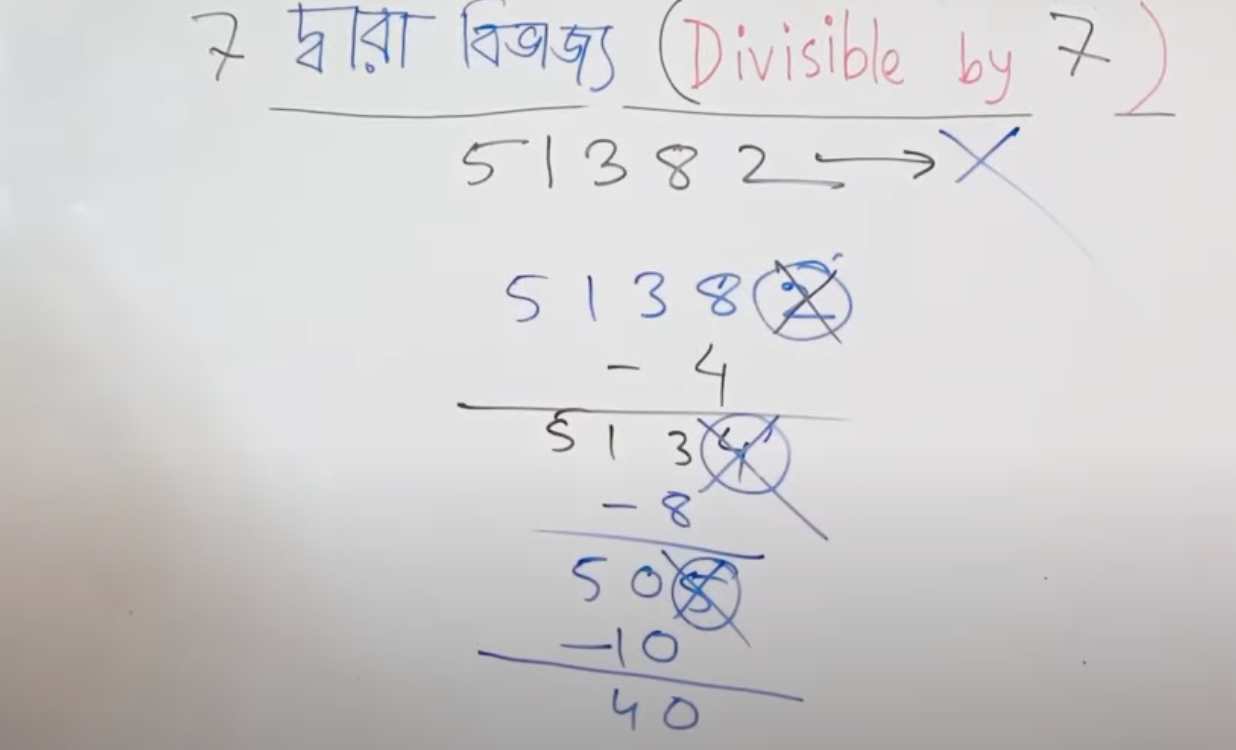 7 দ্বারা বিভাজ্য (Divisible by 7)
51382 → X
51382
- 4
5134
- 8
505
-10
40